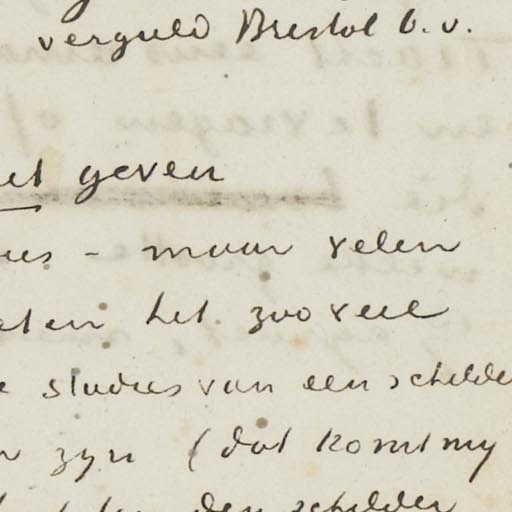 verguld Bristol b.v.
geven
– maar velen
het zooveel
studies van een schilde
zyn (dat komt my
den schilder